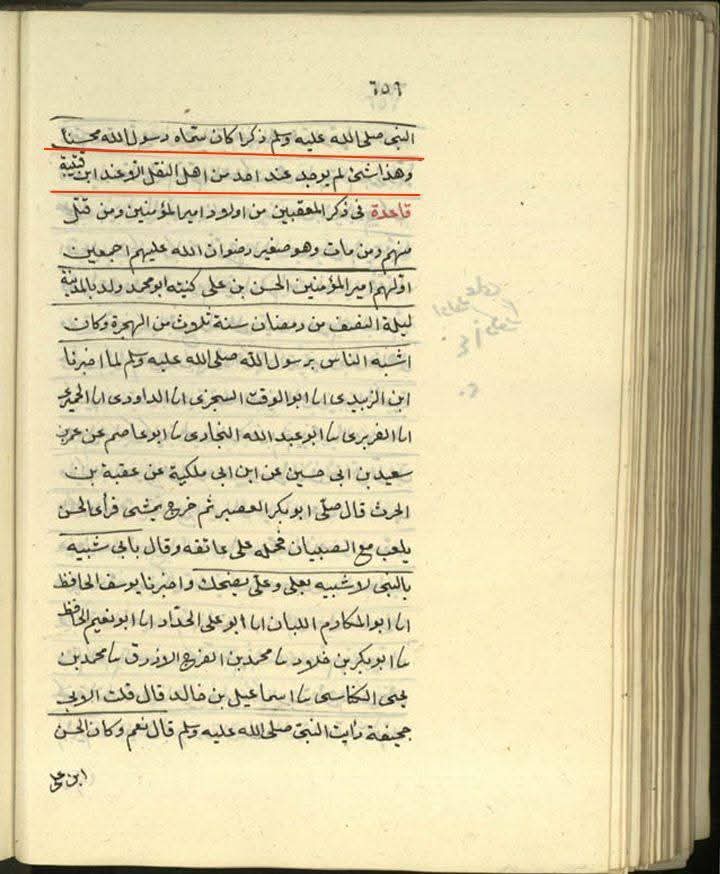 ٦٥٩
النبى صلى الله عليه وسلم ذكرا كان سماه رسول الله محسنا
وهذا شئ لم يوجد عند احد من اهل النقل الا عند ابن قتيبة
قاعدة فى ذكر المعقبين من اولاد امير المؤمنين ومن قتل
منهم ومن مات وهو صغير رضوان الله عليهم اجمعين
اولهم امير المؤمنين الحسن بن على كنيته ابو محمد ولد بالمدينة
ليلة النصف من رمضان سنة ثلاث من الهجرة وكان
اشبه الناس برسول الله صلى الله عليه وسلم لما اخبرنا
ابن الزبيدى انا ابو الوقت السجزى انا الداودى انا الحموى
انا الفربرى نا ابو عبد الله البخارى نا ابو عاصم عن عمر بن
سعيد بن ابى حسين عن ابن ابى مليكة عن عقبة بن
الحرث قال صلى ابو بكر العصر ثم خرج يمشى فرأى الحسن
يلعب مع الصبيان فحمله على عاتقه وقال بابى شبيه
بالنبى لا شبيه بعلى وعلى يضحك واخبرنا يوسف الحافظ
انا ابو المكارم اللبان انا ابو على الحداد انا ابو نعيم الحافظ
نا ابو بكر بن خلاد نا محمد بن الفرج الازرق نا محمد بن
يحيى الكناسى نا اسماعيل بن خالد قال قلت لابى
جحيفة رايت النبى صلى الله عليه وسلم قال نعم وكان الحسن
ابن على